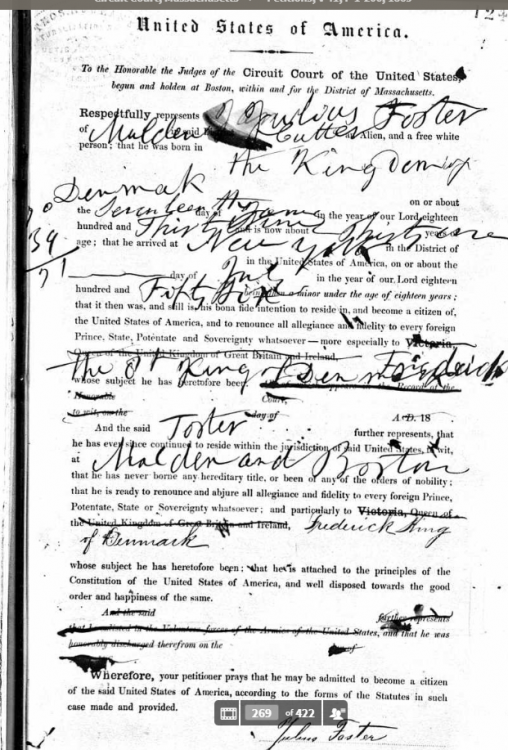 Circuit Court, Massachusetts
Petitions, v 41, 1-200, 1865
United States of America.
To the Honorable the Judges of the Circuit Court of the United States,
begun and holden at Boston, within and for the District of Massachusetts.
Respectfully represents Julius Foster
of Malden in said District Cutter Alien, and a free white
person; that he was born in
the Kingdom of
Denmark on or about
the Seventeenth day of in the year of our Lord eighteen
hundred and Thirty is now about Thirty one years of
age; that he arrived at New York in the District of
in the United States of America, on or about the
day of in the year of our Lord eighteen
hundred and Fifty Six being then a minor under the age of eighteen years;
that it then was, and still is, his bona fide intention to reside in, and become a citizen of,
the United States of America, and to renounce all allegiance and fidelity to every foreign
Prince, State, Potentate and Sovereignty whatsoever — more especially to Victoria,
Queen of the United Kingdom of Great Britain and Ireland,
the King of Denmark Frederick
whose subject he has heretofore been. Record of the
Honorable Court,
to wit, on the day of A.D. 18
And the said Foster further represents, that
he has ever since continued to reside within the jurisdiction of said United States, to wit,
at Malden and Boston
that he has never borne any hereditary title, or been of any of the orders of nobility;
that he is ready to renounce and abjure all allegiance and fidelity to every foreign Prince,
Potentate, State or Sovereignty whatsoever; and particularly to Victoria, Queen of
the United Kingdom of Great Britain and Ireland, Frederick King
of Denmark
whose subject he has heretofore been; that he is attached to the principles of the
Constitution of the United States of America, and well disposed towards the good
order and happiness of the same.
And the said further represents
that I enlisted in the Volunteer forces of the Armies of the United States, and that he was
honorably discharged therefrom on the
Wherefore, your petitioner prays that he may be admitted to become a citizen
of the said United States of America, according to the forms of the Statutes in such
case made and provided.
269 of 422
Julius Foster